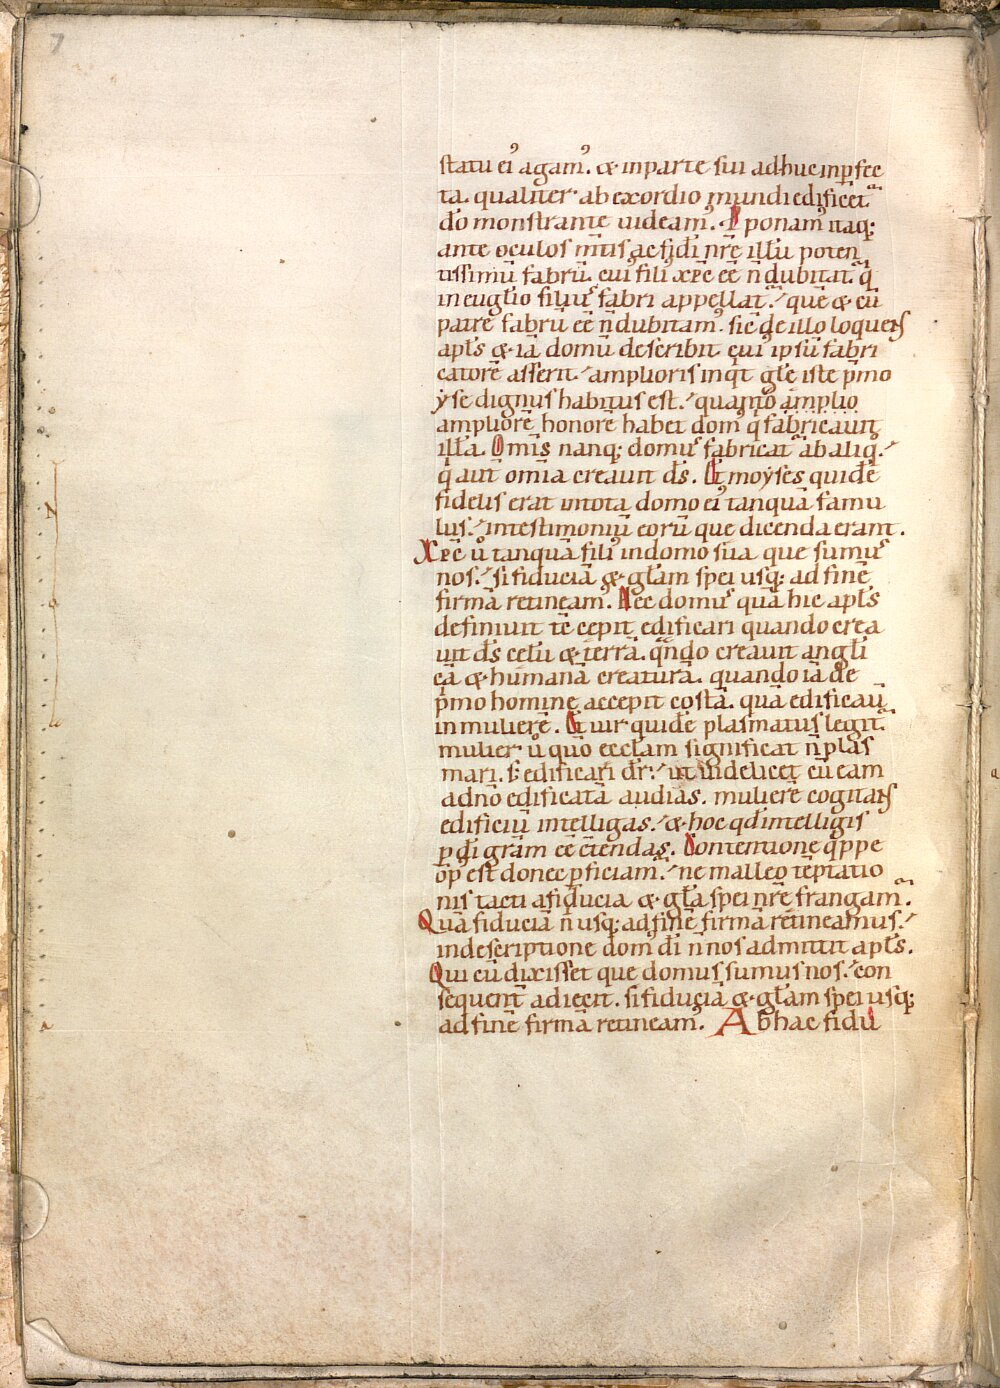 7
statu ei᾽ agam᾽. & inparte sui adhuc inp̱fec
ta. qualiter ab exordio mundi edificet᷑
dō monstrante uideam᾽. P̱ponam᾽ itaq;
ante oculos m̅tis ac fidi n̅re illū poten
tissimū fabrū. cui᾽ fili᾽ xp̅c e̅e n̅ dubitat᷑. q̅
in euglio filiu᾽ fabri appellat᷑. que & cū
patre fabrū e̅e n̅ dubitam᾽. sic de illo loquens
apl̅s & iā domū describit cui᾽ ipsū fabri
catorē asserit. amplioris inqt gl̅e iste p̅mo
yse dignus habitus est. quanto amplio
ampliorē honorē habet dom᾽ q̅ fabricauit
illā. Om̅is nanq; dom᾽ fabricat᷑ ab aliq̊.
q̅ aut̅ omia creauit d̅s. Et moyses quidē
fidelis erat in tota domo ei᾽ tanquā famu
lus. intestimoniū eorū que dicenda erant.
Xp̅c ů tanquā fili᾽ indomo sua que sumu᾽
nos. si fiduciā & gl̅am spei usq; ad finē
firmā retineam᾽. Nec domu᾽ quā hic apl̅s
definiuit tc̅ cepit edificari quando crea
uit d̅s celū & terrā. qn̅do creauit angl̅i
cā & humanā creaturā. quando iā de
p̅mo homine accepit costā. quā edificau̅
in mulierē. Et uir quidē plasmatus legit᷑.
mulier ů quo eccl̅am significat n̅ plas
mari. s; edificari dr̅. ut uidelicet cū eam
adn̅o edificatā audias. mulierē cogitans
edificiū intelligas. & hoc qd̅ intelligis
p̱ di̅ gram e̅e c̅tendas. Contentione q̅ppe
op᾽ est donec p̱ficiam᾽. ne malleo teptatio
nis tacti afiducia & gl̅a spei n̅re frangam᾽.
Quā fiduciā n̅ usq; ad finē firmā retineamus.
indescriptione dom᾽ di̅ n̅ nos admittit apl̅s.
Qui cū dixisset que domus sumus nos. con
sequent̅ adiecit. si fiduciā & gl̅am spei usq;
ad finē firmā retineam᾽. Ab hac fidu